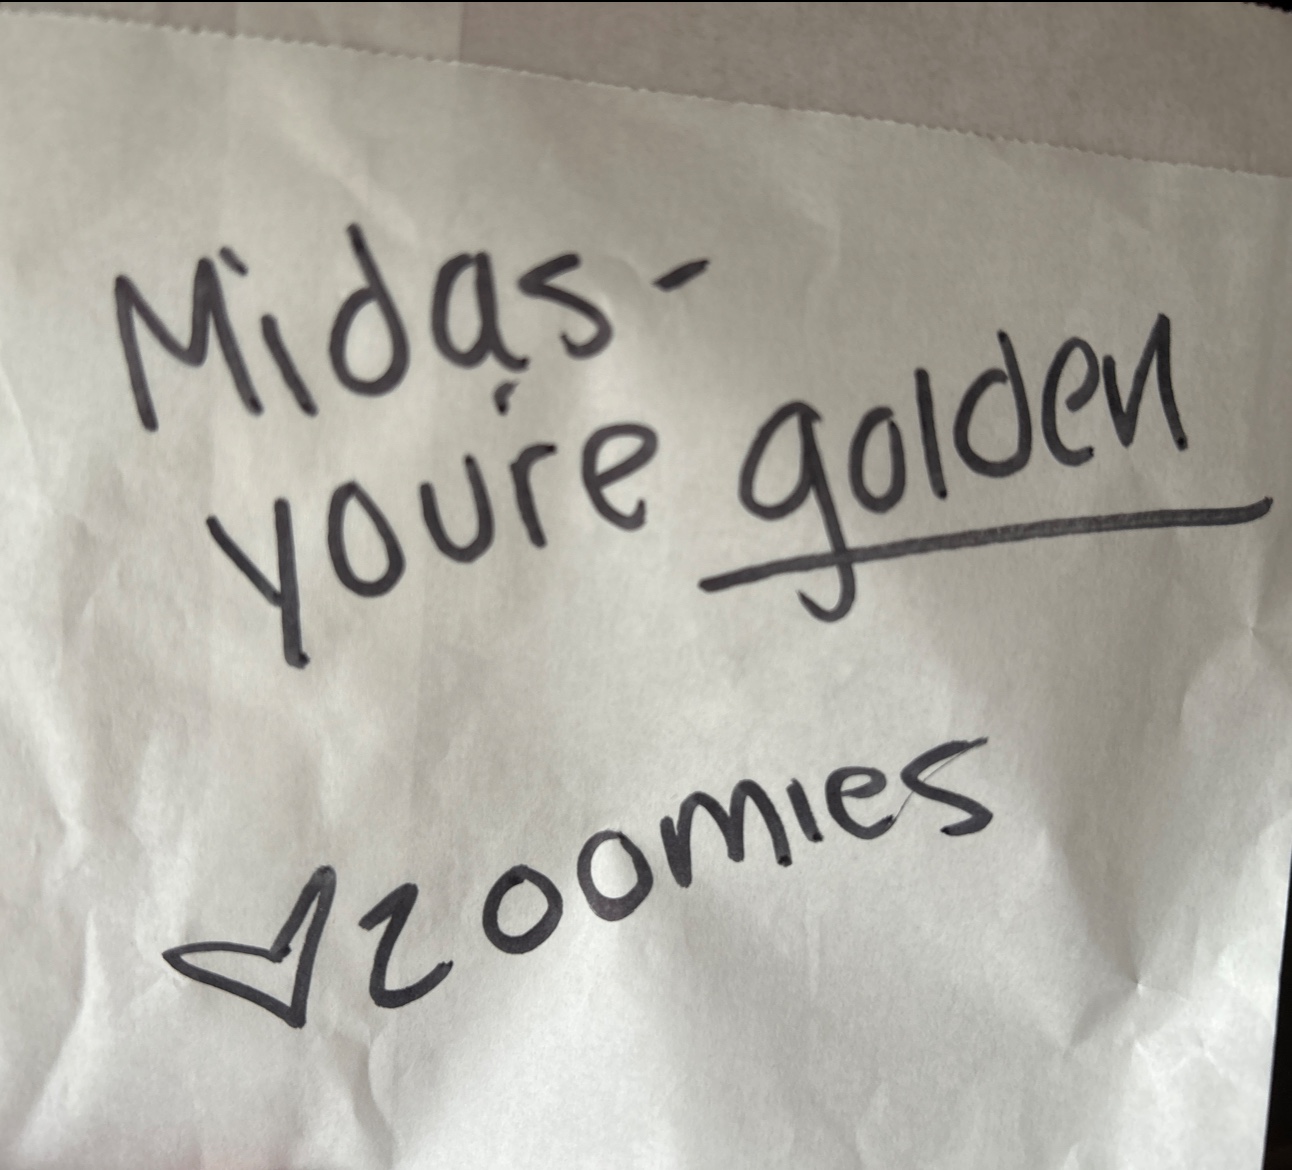 Midas-
you're golden
♡zoomies